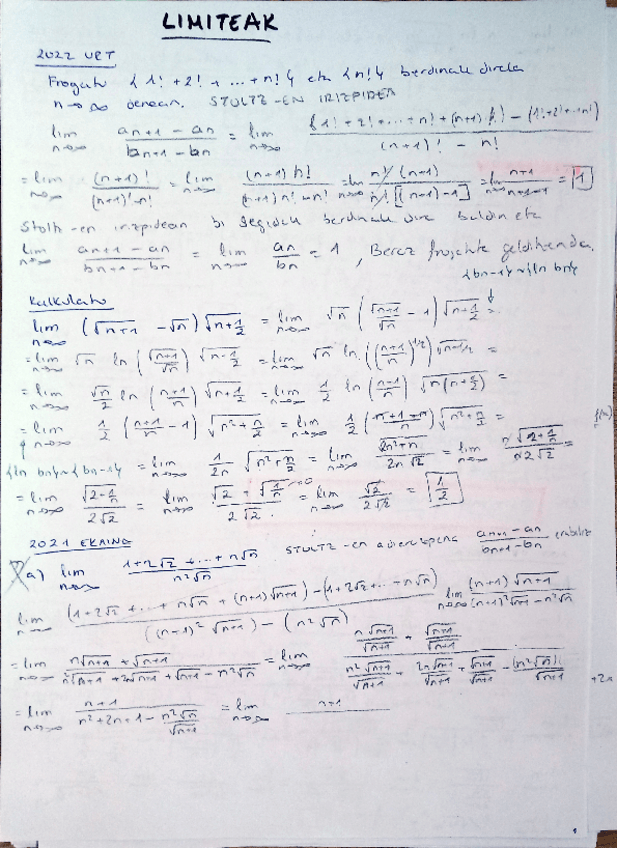 LIMITEAK
2022 URT
Frogatu {1!+2!+...+n!} eta {n!} berdinak direla
n→∞ denean. STOLTZ-EN IRIZPIDEA
lim n→∞ (an+1 - an)/(bn+1 - bn) = lim n→∞ ((1!+2!+...+n!+(n+1)!) - (1!+2!+...+n!))/((n+1)! - n!)
= lim n→∞ (n+1)!/((n+1)!-n!) = lim n→∞ (n+1) n!/((n+1) n! - n!) = lim n→∞ n! (n+1)/(n! [(n+1)-1]) = lim n→∞ (n+1)/(n+1-1) = 1
Stoltz-en irizpidean bi segidak berdinak dira baldin eta
lim n→∞ (an+1 - an)/(bn+1 - bn) = lim n→∞ an/bn = 1, Beraz frogatuta gelditzen da.
{bn-1} ~ {ln bn}
Kalkulatu
lim n→∞ (√n+1 - √n) √n+1/2 = lim n→∞ √n (√n+1/√n - 1) √n+1/2 =
= lim n→∞ √n ln (√n+1/√n) √n+1/2 = lim n→∞ √n ln ((n+1/n)^1/2) √n+1/2 =
= lim n→∞ √n/2 ln (n+1/n) √n+1/2 = lim n→∞ 1/2 ln (n+1/n) √n(n+1/2) =
= lim n→∞ 1/2 (n+1/n - 1) √n²+n/2 = lim n→∞ 1/2 (n+1-n/n) √n²+n/2 =
{ln bn} ~ {bn-1} = lim n→∞ 1/2n √n²+n/2 = lim n→∞ √2n²+n/2n√2 = lim n→∞ n√2+1/n/n2√2 =
= lim n→∞ √2+1/n/2√2 = lim n→∞ √2+√1/n→0/2√2 = lim n→∞ √2/2√2 = 1/2
2021 EKAINA
a) lim n→∞ (1+2√2+...+n√n)/n²√n STOLTZ-EN (an+1 - an)/(bn+1 - bn) erabiliz
lim n→∞ ((1+2√2+...+n√n+(n+1)√n+1) - (1+2√2+...+n√n))/(((n+1)² √n+1) - (n²√n)) lim n→∞ (n+1)√n+1/((n+1)²√n+1 - n²√n)
= lim n→∞ (n√n+1 + √n+1)/(n²√n+1 + 2n√n+1 + √n+1 - n²√n) = lim n→∞ (n√n+1/√n+1 + √n+1/√n+1)/(n²√n+1/√n+1 + 2n√n+1/√n+1 + √n+1/√n+1 - (n²√n)/√n+1)
= lim n→∞ (n+1)/(n²+2n+1 - n²√n/√n+1) = lim n→∞ n+1